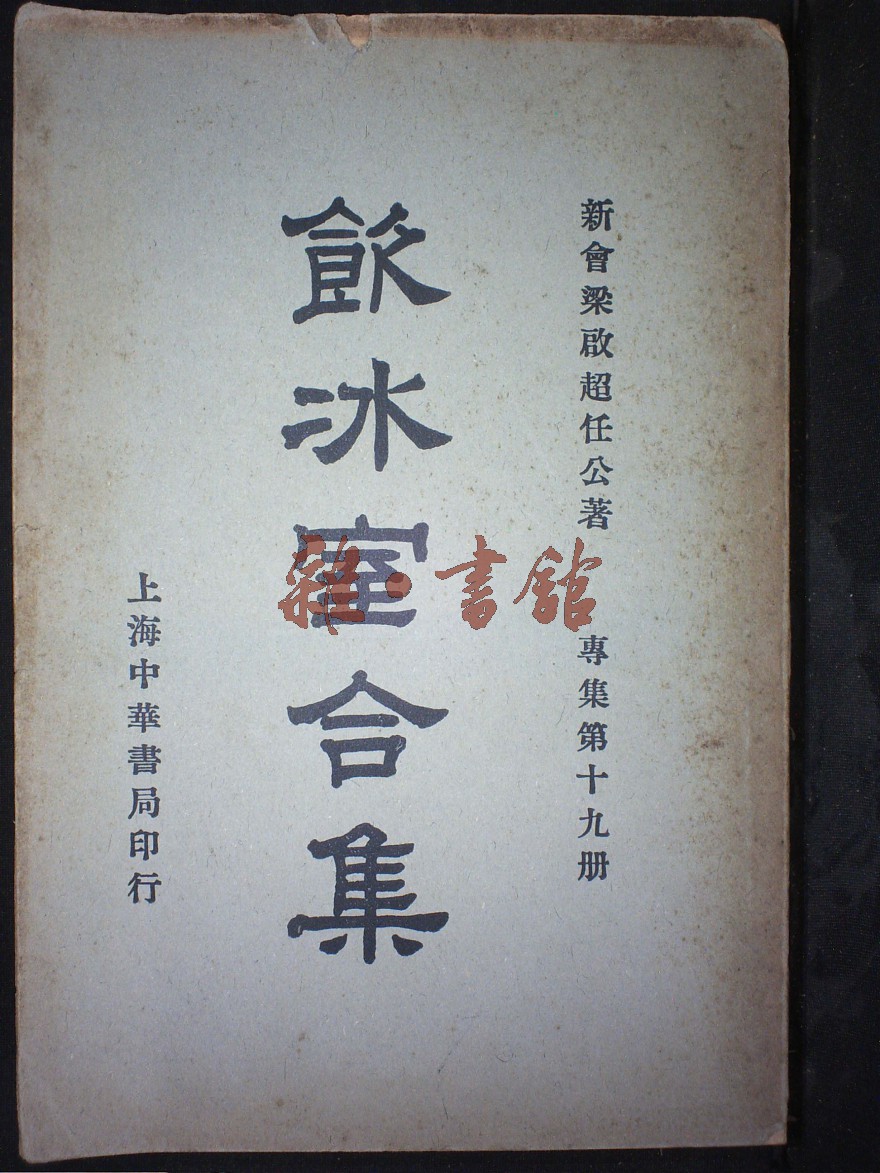 新會梁啟超任公著　專集第十九册
飲冰室合集
上海中華書局印行
雜·書館